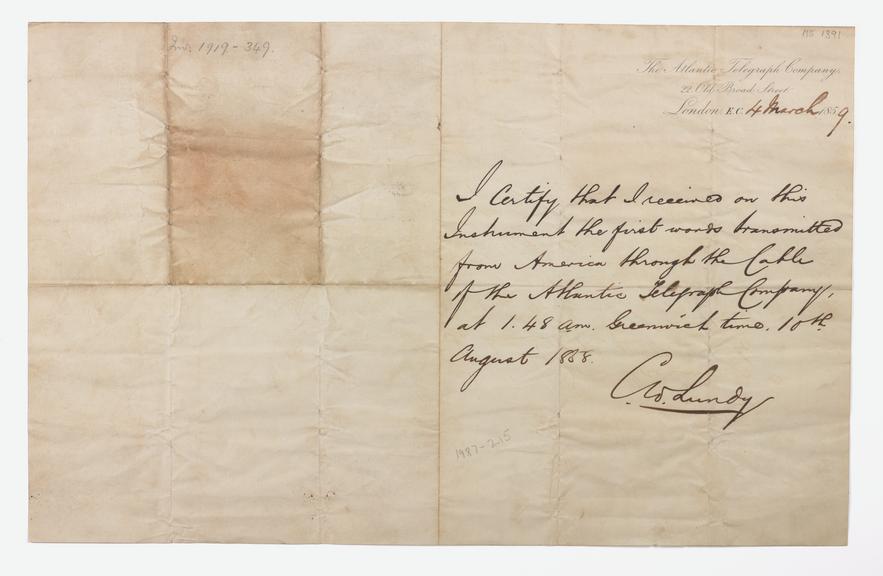 Inv. 1919-349.
MS 1391
The Atlantic Telegraph Company,
22, Old Broad Street
London E.C. 4 March 1859.
I certify that I received on this
Instrument the first words transmitted
from America through the Cable
of the Atlantic Telegraph Company,
at 1.48 am. Greenwich time. 10th
August 1858.
C.W. Lundy
1987-215